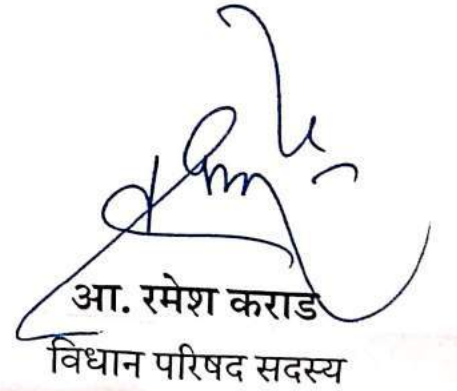 आ. रमेश कराड
विधान परिषद सदस्य